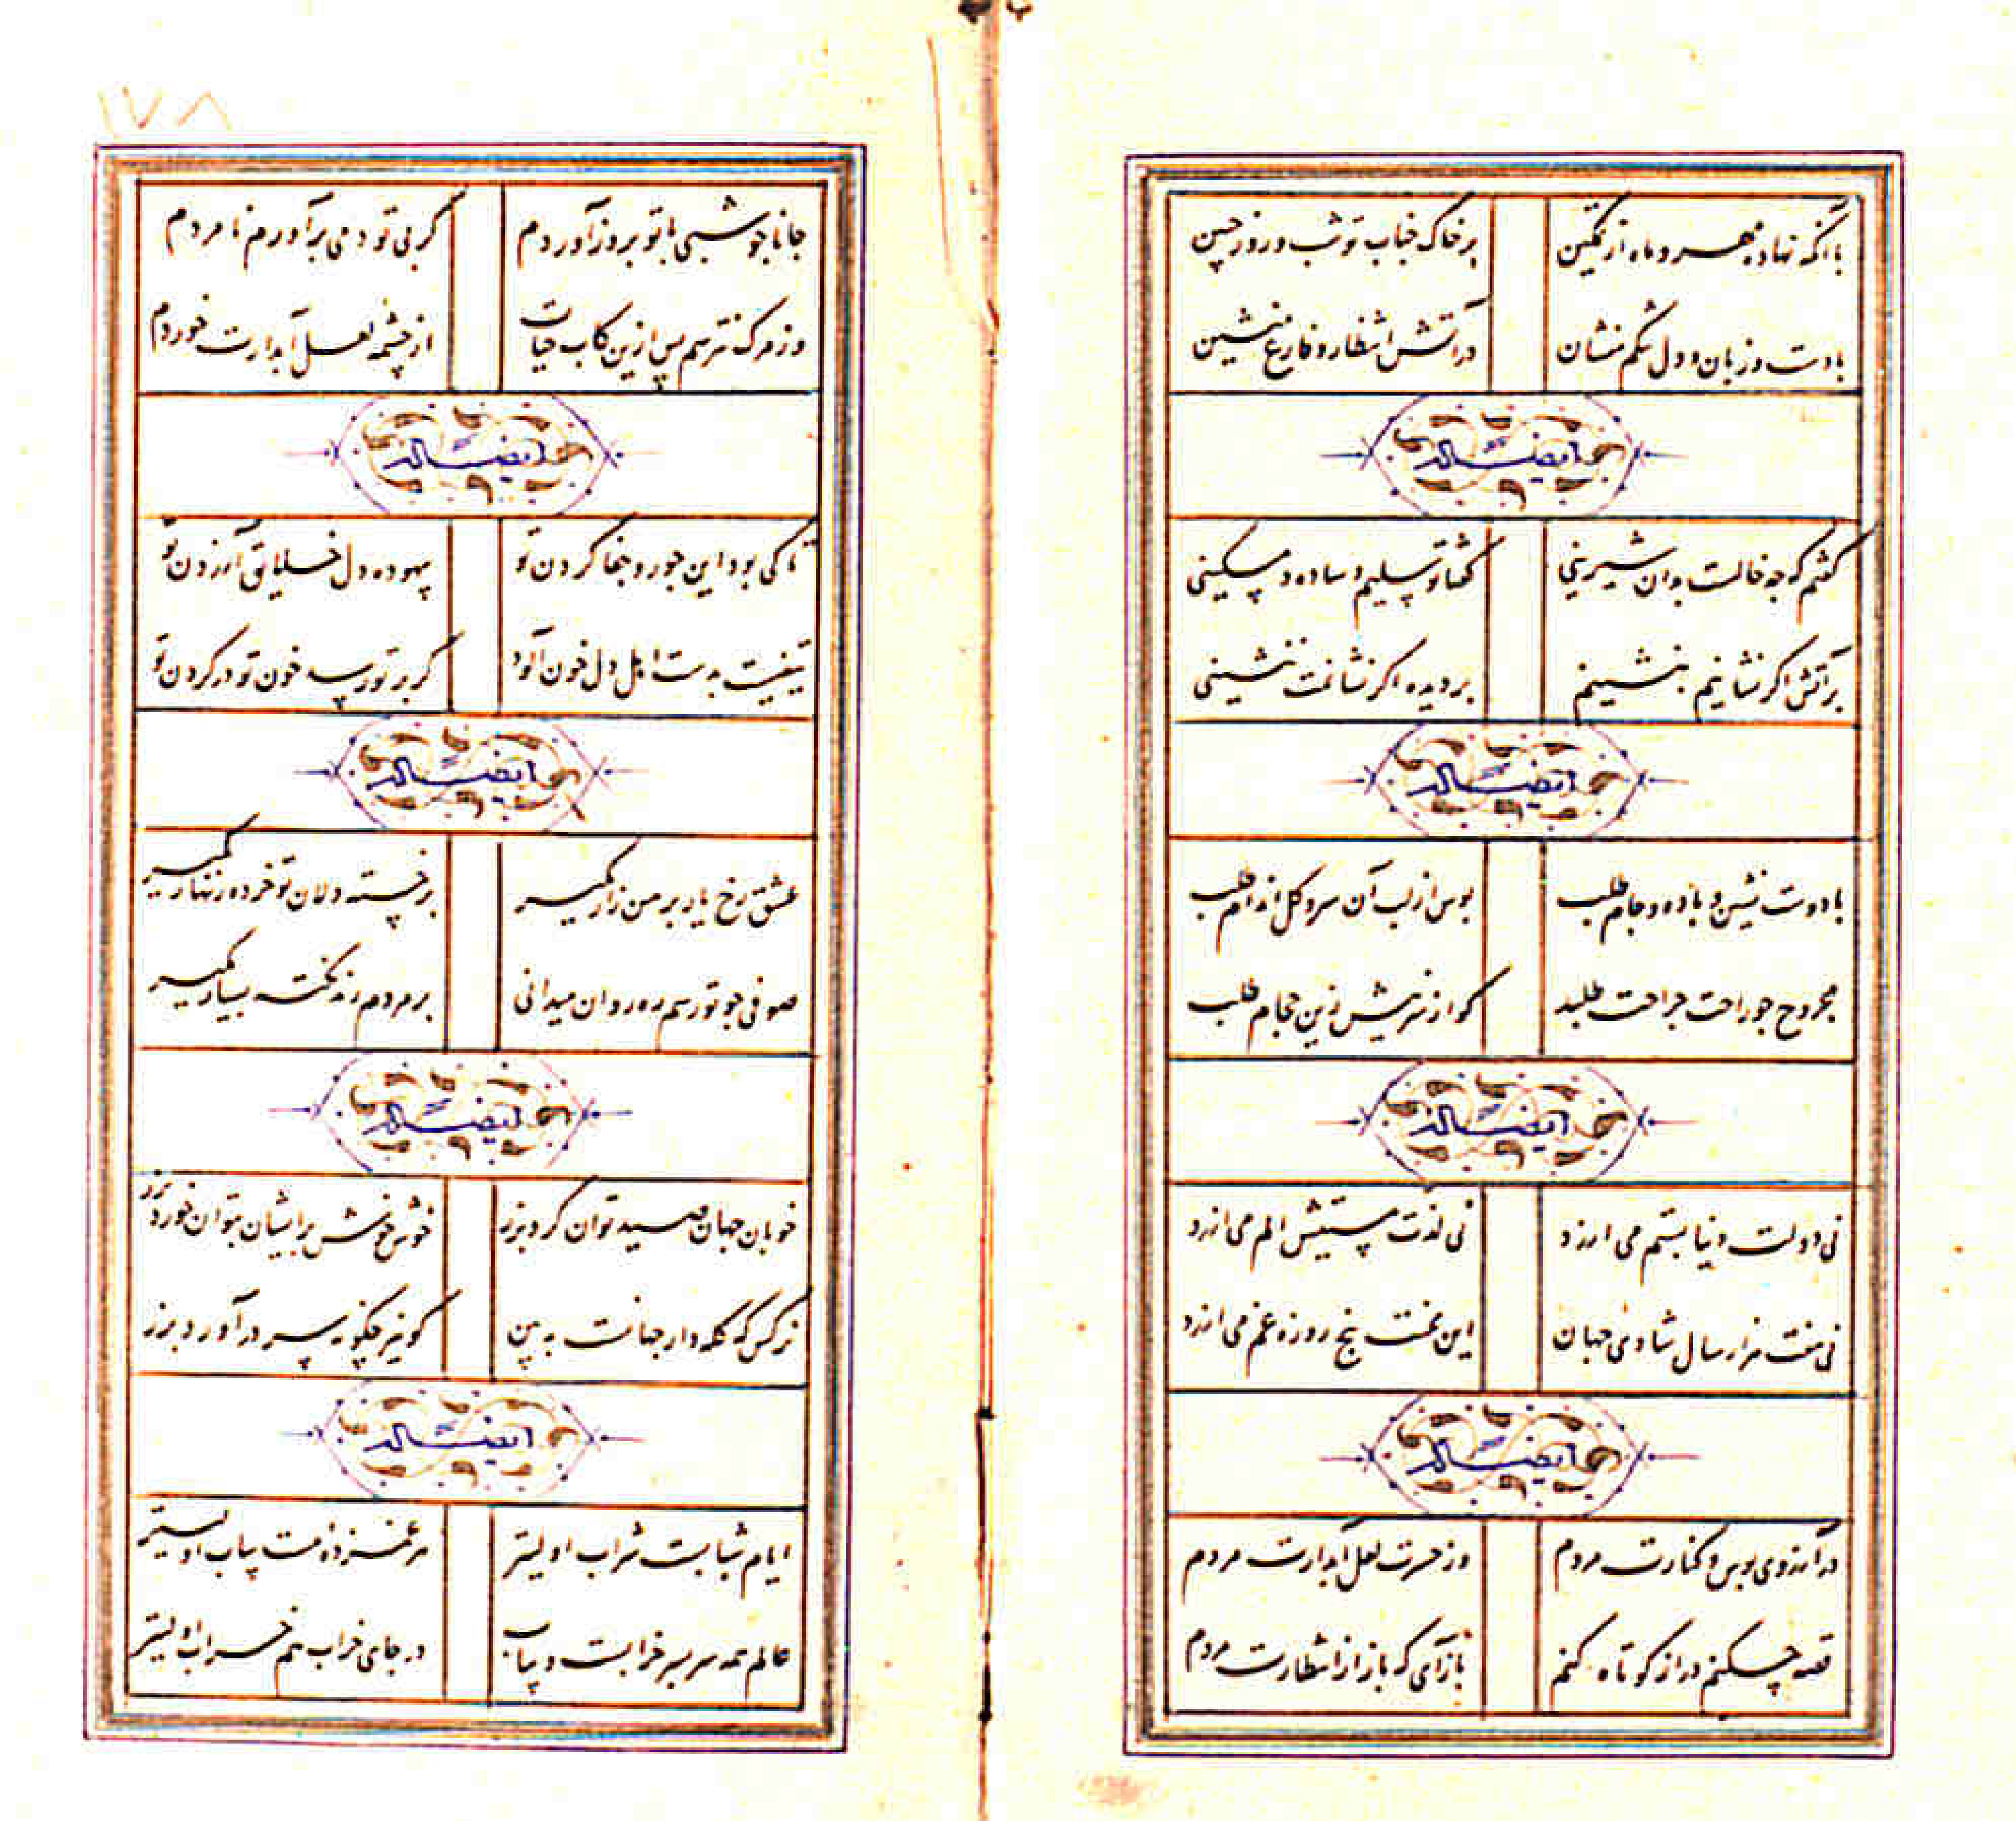 با آنکه نهاده مهر و ماه از تمکین بر خاک جناب تو شب و روز جبین
با دست و زبان و دل تنگم منشان در آتش انتظار و فارغ منشین
ایضاً له
گفتم که چه خالست بدان شیرینی گفتا تو سلیم و ساده و مسکینی
بر آتش اگر نشانیم بنشینم بر دیده اگر نشانمت ننشینی
ایضاً له
با دوست نشین و باده و جام طلب بوس از لب آن سرو گل اندام طلب
مجروح چو راحت جراحت طلبد گو از سر نیش زین حجام طلب
ایضاً له
نی دولت دنیا بستم می ارزد نی لذت مستیش الم می ارزد
نی هفت هزار سال شادی جهان این محنت پنج روزه غم می ارزد
ایضاً له
در آرزوی بوس و کنارت مردم وز حسرت لعل آبدارت مردم
قصه چکنم دراز کوتاه کنم بازآی که باز از انتظارت مردم
۱۷۸
جانا چو شبی با تو بروز آوردم گر بی تو دمی برآورم نامردم
وز مرگ نترسم پس ازین کاب حیات از چشمه لعل آبدارت خوردم
ایضاً له
تا کی بود این جور و جفا کردن تو بیهوده دل خلایق آزردن تو
تیغیست بدست اهل دل خون آلود گر بر تو رسد خون تو در گردن تو
ایضاً له
عشق رخ یار بر من زار مگیر بر خسته دلان تو خرده زنهار مگیر
صوفی چو تو رسم ره روان میدانی بر مردم رند نکته بسیار مگیر
ایضاً له
خوبان جهان صید توان کرد بزر خوش خوش بر ایشان بتوان خورد بزر
نرگس که کله دار جهانست به بین کو نیز چگونه سر در آورد بزر
ایضاً له
ایام شبابست شراب اولیتر هر غمزده مست بیاب اولیتر
عالم همه سر بسر خرابست و بیاب در جای خراب هم خراب اولیتر